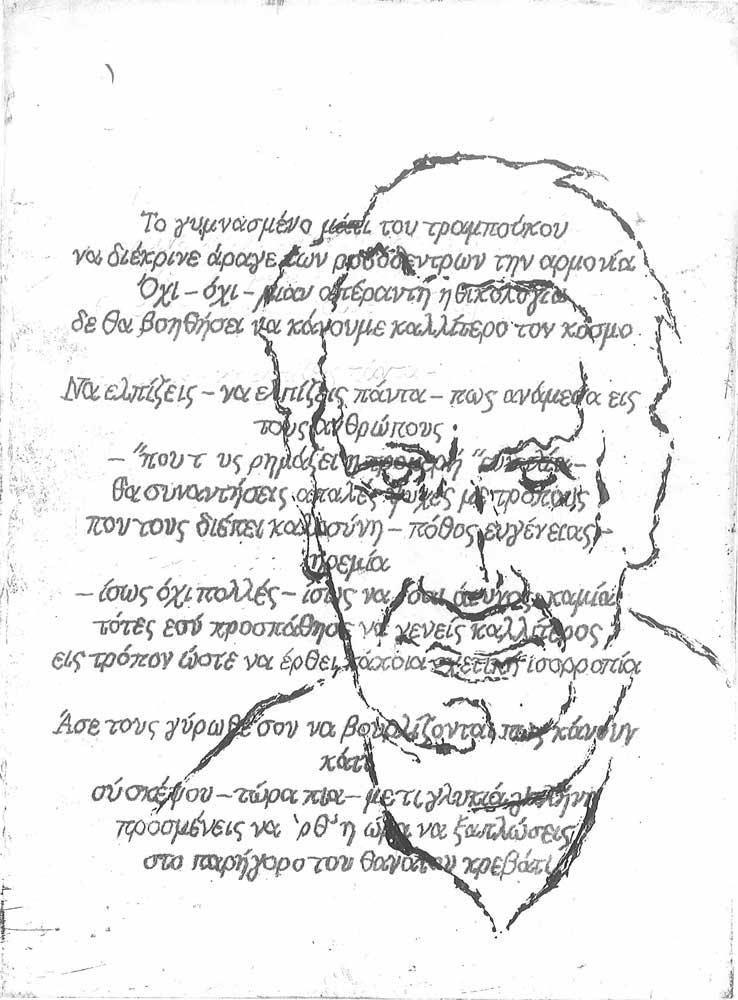 Το γυμνασμένο μάτι του τραμπούκου
να διέκρινε άραγε των ροδοδέντρων την αρμονία
Όχι – όχι – μιαν απέραντη ηθικολογία
δε θα βοηθήσει να κάνουμε καλλίτερο τον κόσμο
Να ελπίζεις – να ελπίζεις πάντα – πως ανάμεσα εις
τους ανθρώπους
– "που τ υς ρημάζει η τρομερή "ευκολία –
θα συναντήσεις απαλές ψυχές με τρόπους
που τους διέπει καλωσύνη – πόθος ευγένειας –
ηρεμία
– ίσως όχι πολλές – ίσως να 'σαι άτυχος καμία
τότες εσύ προσπάθησε να γενείς καλλίτερος
εις τρόπον ώστε να έρθει κάποια σχετική ισορροπία
Άσε τους γύρωθέ σου να βουρλίζονται πως κάνουν
κάτι
σύ σκέψου – τώρα πια – με τι γλυκιά γαλήνη
προσμένεις να 'ρθ' η ώρα να ξαπλώσεις
στο παρήγορο του θανάτου κρεβάτι